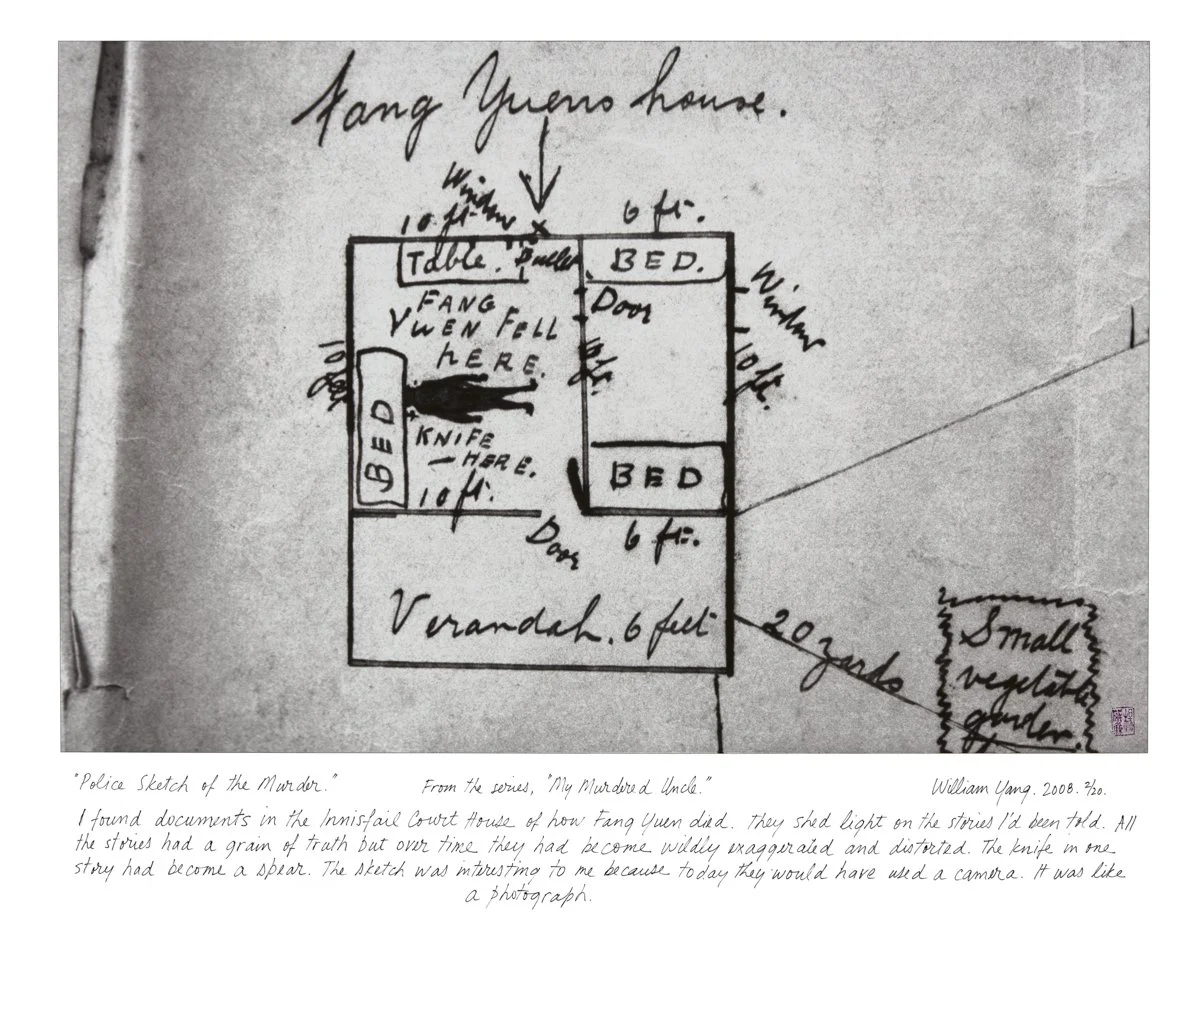 Fang Yuens house.
Window
10 ft.
6 ft.
Table.
Bullet
BED.
FANG
YUEN FELL
HERE.
Door
Window
10 ft.
10 ft.
BED
KNIFE
— HERE.
10 ft.
BED
Door
6 ft.
Verandah. 6 feet
20 yards
Small
vegetable
garden.
"Police Sketch of the Murder." From the series, "My Murdered Uncle." William Yang. 2008. 2/20.
I found documents in the Innisfail Court House of how Fang Yuen died. They shed light on the stories I'd been told. All
the stories had a grain of truth but over time they had become wildly exaggerated and distorted. The knife in one
story had become a spear. The sketch was interesting to me because today they would have used a camera. It was like
a photograph.